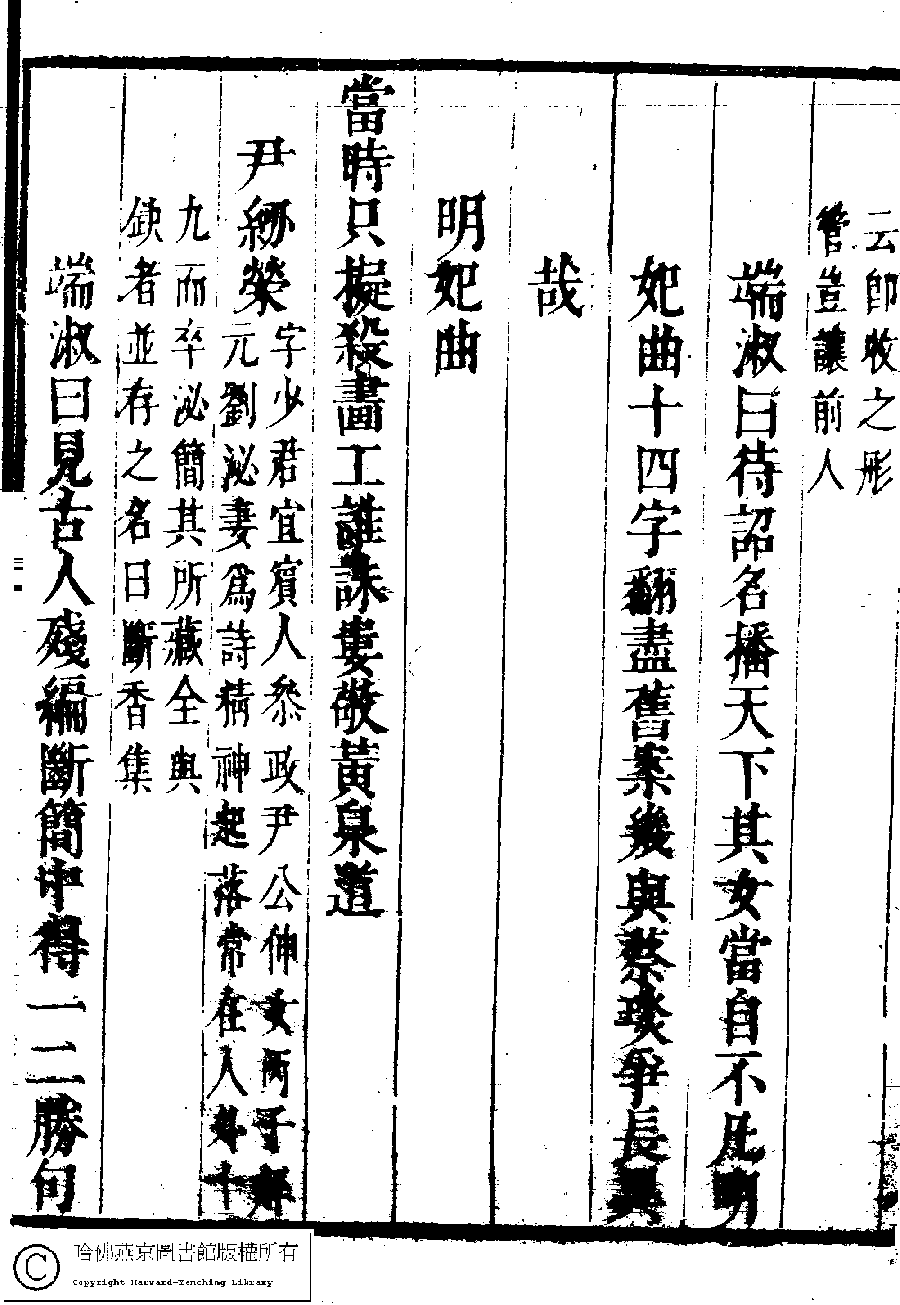 云即收之彤
管豈讓前人
端淑曰待詔名播天下其女當自不凡明
妃曲十四字翻盡舊案幾與蔡琰爭長異
哉
明妃曲
當時只擬殺畫工誰誅婁敬黃泉道
尹紉榮
字少君宜賓人叅政尹公伸女丙子解
元劉泌妻爲詩精神起落常在人外十
九而卒泌簡其所藏全與
缺者並存之名曰斷香集
端淑曰見古人殘編斷簡中得一二勝句
哈佛燕京圖書館版權所有
Copyright Harvard-Yenching Library